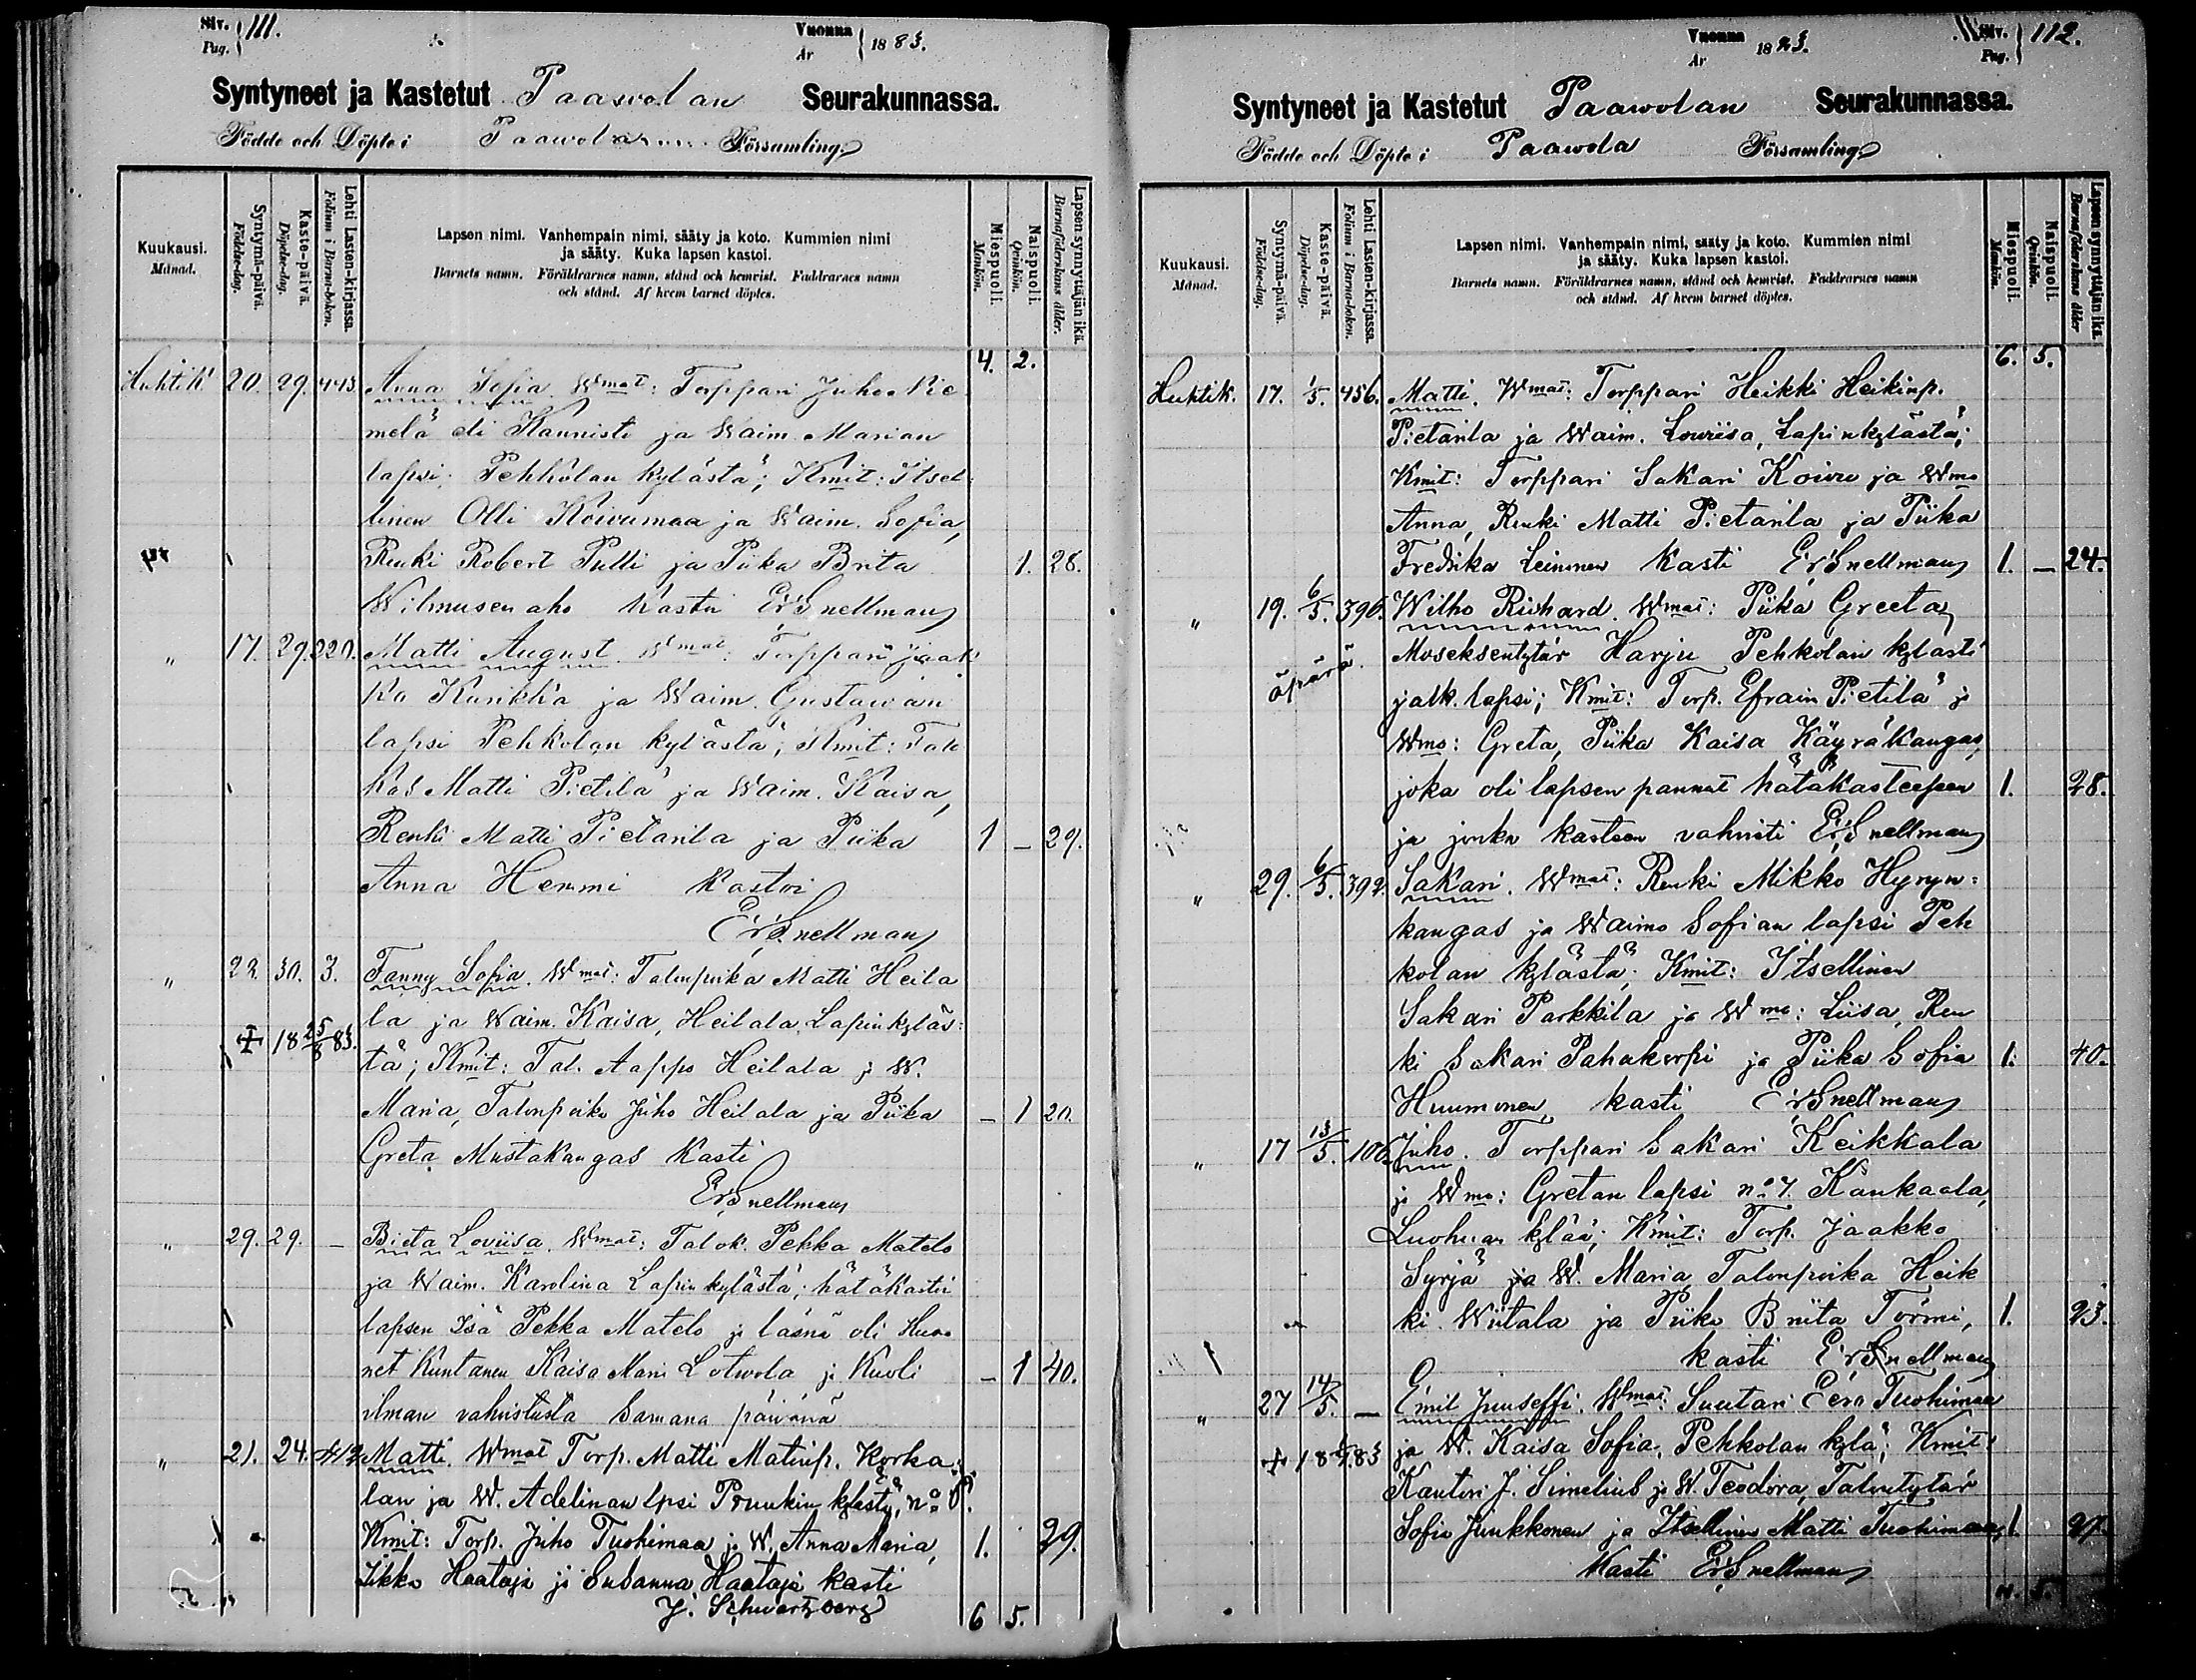 Siv. Pag. 111.
Vuonna År 1883.
Syntyneet ja Kastetut Paawolan Seurakunnassa.
Födde och Döpte i Paawolan Församling
Kuukausi. Månad.
Syntymä-päivä. Födelse-dag.
Kaste-päivä. Döpelse-dag.
Lehti Lasten-kirjassa. Folium i Barna-boken.
Lapsen nimi. Vanhempain nimi, sääty ja koto. Kummien nimi
ja sääty. Kuka lapsen kastoi.
Barnets namn. Föräldrarnes namn, stånd och hemvist. Faddrarnes namn
och stånd. Af hvem barnet döptes.
Miespuoli. Mankön.
Naispuoli. Qvinkön.
Lapsen synnyttäjän ikä. Barnaföderskans ålder.
4. 2.
Huhtik 20. 29. 443 Anna Sofia. Wmat: Torppari Juho Nie
melä eli Kannisto ja Waim. Marian
lapsi. Pehkolan kylästä; Kmit: Itsel
linen Olli Koivumaa ja Waim. Sofia,
Renki Robert Pulli ja Piika Brita 1. 28.
Wilmusenaho kastoi Er Snellman
" 17. 29. 220. Matti August. Wmat: Torppari Jaak
ko Kurikka ja Waim. Gustawan
lapsi Pehkolan kylästä; Kmit: Talo
kas Matti Pietilä ja Waim. Kaisa,
Renki Matti Pietarila ja Piika 1 – 29.
Anna Hemmi kastoi
Er Snellman
" 22. 30. 3. Fanny Sofia. Wmat: Talonpoika Matti Heila
la ja Waim. Kaisa, Heilala, Lapinkyläs-
+ 18 25/8 83. tä; Kmit: Tal. Aappo Heilala ja W.
Maria, Talonpoika Juho Heilala ja Piika – 1 20.
Greta Mustakangas kasti
Er Snellman
" 29. 29. – Brita Loviisa. Wmat: Talok. Pekka Matelo
ja Waim. Karolina Lapinkylästä; hätäkastoi
lapsen Isä Pekka Matelo ja läsnä oli Huo
net Kuntanen Kaisa Mari Lotvola ja kuoli – 1 40.
ilman vahvistusta samana päivänä
" 21. 24. 412 Matti. Wmat Torp. Matti Matinp. Korka
lan ja W. Adelinan lpsi Pruukin kylästä, no 8.
Kmit: Torp. Juho Tuohimaa ja W. Anna Maria, 1. 29.
Iikka Haataja ja Susanna Haataja kasti
J. Schwartzberg
6 5.
Vuonna År 1883.
Siv. Pag. 112.
Syntyneet ja Kastetut Paawolan Seurakunnassa.
Födde och Döpte i Paawola Församling
Kuukausi. Månad.
Syntymä-päivä. Födelse-dag.
Kaste-päivä. Döpelse-dag.
Lehti Lasten-kirjassa. Folium i Barna-boken.
Lapsen nimi. Vanhempain nimi, sääty ja koto. Kummien nimi
ja sääty. Kuka lapsen kastoi.
Barnets namn. Föräldrarnes namn, stånd och hemvist. Faddrarnes namn
och stånd. Af hvem barnet döptes.
Miespuoli. Mankön.
Naispuoli. Qvinkön.
Lapsen synnyttäjän ikä. Barnaföderskans ålder
6. 5.
Huhtik. 17. 1/5. 456. Matti. Wmat: Torppari Heikki Heikinp.
Pietarila ja Waim. Lowiisa, Lapinkylästä;
Kmit: Torppari Sakari Koivu ja Wmo
Anna, Renki Matti Pietarila ja Piika
Fredrika Leinonen kasti Er Snellman 1. – 24.
" 19. 6/5. 396. Wilho Richard. Wmat: Piika Greeta
äpärä. Moseksentytär Harju Pehkolan kylästä
jalk. lapsi; Kmit: Torp. Efraim Pietilä ja
Wmo: Greta, Piika Kaisa Käyräkangas,
joka oli lapsen pannut hätäkasteeseen 1. 28.
ja jonka kasteen vahvisti Er Snellman
" 29. 6/5. 392. Sakari. Wmat: Renki Mikko Hyryn-
kangas ja Waimo Sofian lapsi Peh
kolan kylästä; Kmit: Itsellinen
Sakari Parkkila ja Wmo: Liisa, Ren
ki Sakari Pahakorpi ja Piika Sofia 1. 40.
Huumonen, kasti Er Snellman
" 17 13/5. 106. Juho. Torppari Sakari Keikkala
ja Wmo: Gretan lapsi no 7. Kankaala,
Luohuan kylää; Kmit: Torp. Jaakko
Syrjä ja W. Maria, Talonpoika Heik
ki Wiitala ja Piika Briita Törmi, 1. 23.
kasti Er Snellman
" 27 14/5. – Emil Juuseffi. Wmat: Suutari Eero Tuohimaa
+ 18 83 ja W. Kaisa Sofia, Pehkolan kylä; Kmit:
Kanttori J. Simelius ja W. Teodora, Talontytär
Sofia Juukkonen ja Itsellinen Matti Tuohimaa 1.
Kasti Er Snellman
5.